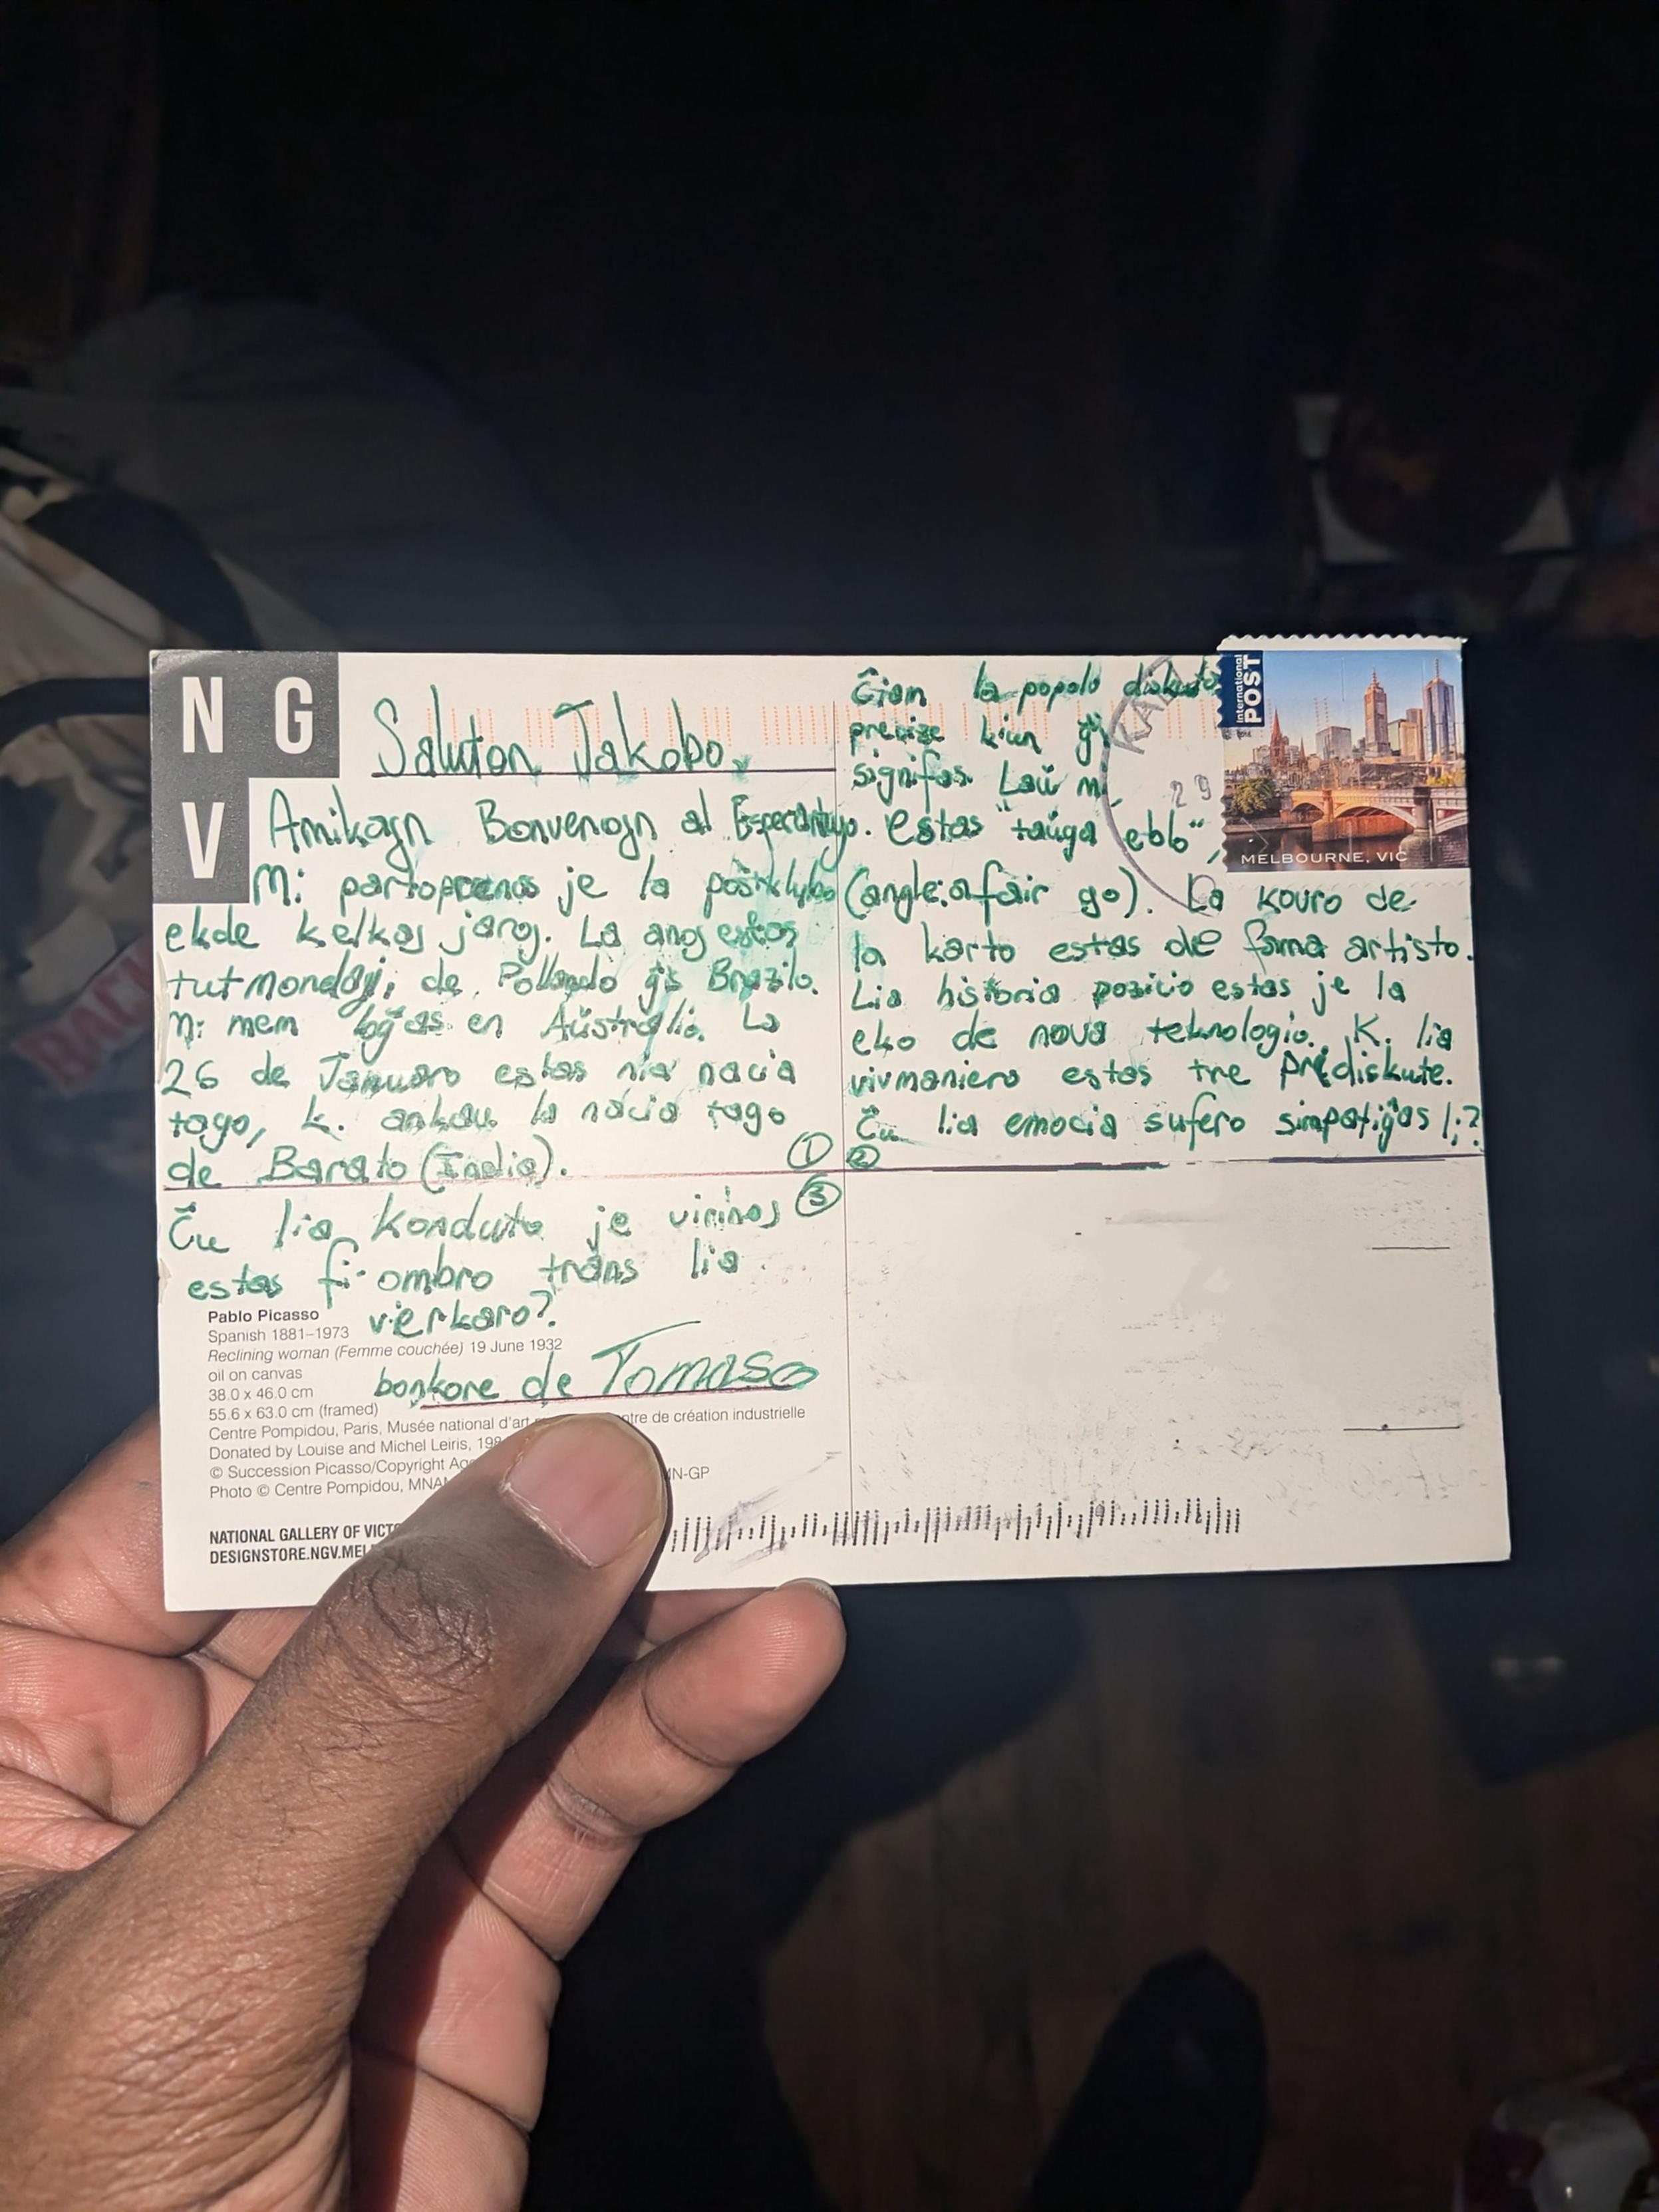 N G
V
Saluton Jakobo,
Amikajn Bonvenojn al
Mi partoprenas je la poŝtklubo
ekde kelkaj jaroj. La anoj estas
tutmondaj, de Pollando ĝis Brazilo.
Mi mem loĝas en Aŭstralio. La
26 de Januaro estas nia nacia
tago, k. ankau la nacia tago
de Barato (India).
①
Ĉiam la popolo
precize kiun ĝi
signifas. Laŭ mi,
estas "taŭga ebb",
(angle: a fair go). La kovro de
la karto estas de fama artisto.
Lia historia pozicio estas je la
eko de nova teknologio. K. lia
vivmaniero estas tre pridiskute.
Ĉu lia emocia sufero simpatiĝas li?
②
Ĉu lia konduto je virinoj ③
estas fi-ombro trans lia
verkaro?
bonkore de Tomaso
Pablo Picasso
Spanish 1881–1973
Reclining woman (Femme couchée) 19 June 1932
oil on canvas
38.0 x 46.0 cm
55.6 x 63.0 cm (framed)
Centre Pompidou, Paris, Musée national d'art de création industrielle
Donated by Louise and Michel Leiris,
© Succession Picasso/Copyright
Photo © Centre Pompidou,
NATIONAL GALLERY OF
International
POST
MELBOURNE, VIC
29